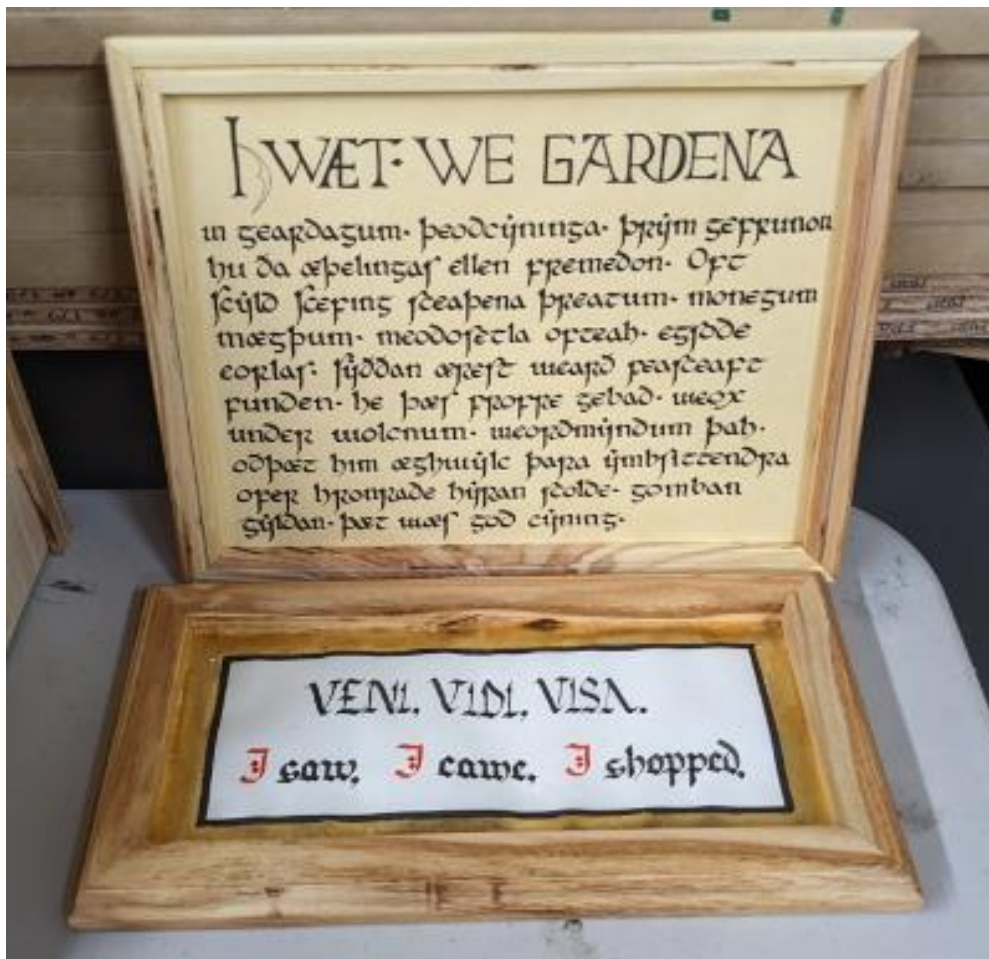 HWÆT· WE GARDENA
in geardagum· þeodcyninga· þrym gefrunon
hu ða æþelingas ellen fremedon· Oft
scyld scefing sceaþena þreatum· monegum
mægþum· meodosetla ofteah· egsode
eorlas· syððan ærest weard feasceaft
funden· he þæs frofre gebad· weox
under wolcnum· weordmyndum þah·
odþæt him æghwylc þara ymbsittendra
ofer hronrade hyran scolde· gomban
gyldan· þæt wæs god cyning·
VENI, VIDI, VISA.
I saw, I came, I shopped.